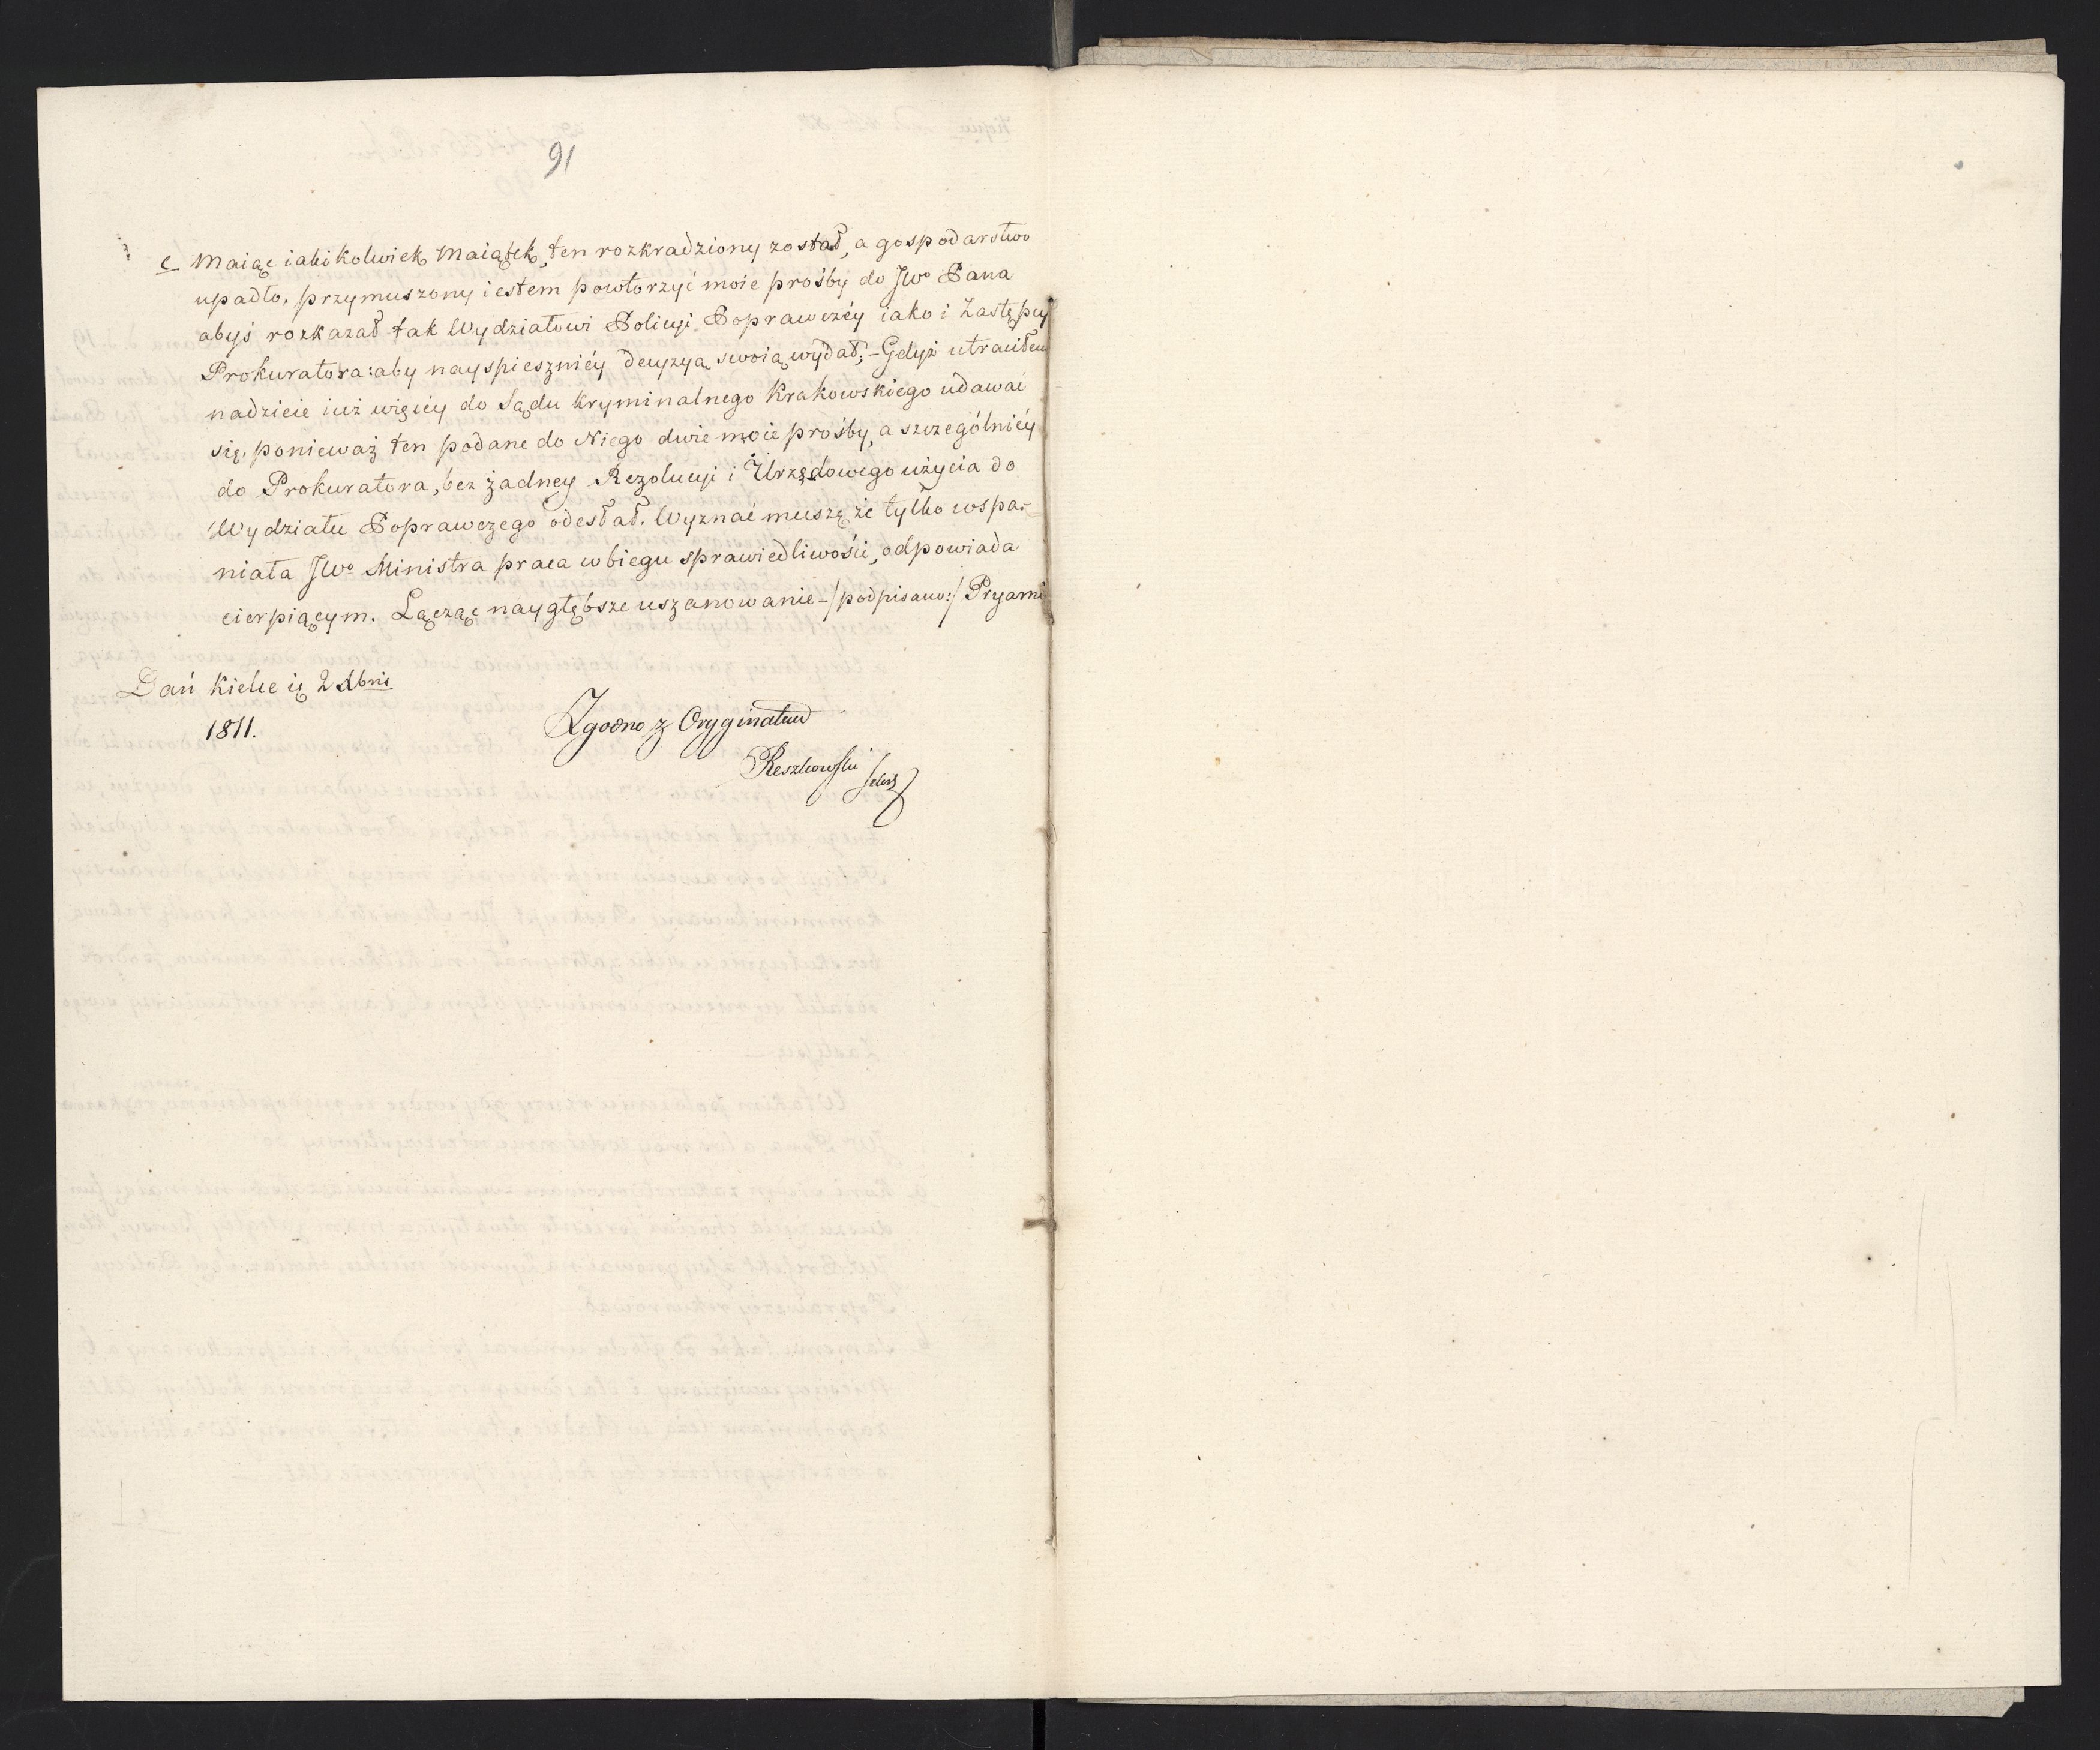 91
c Maiąc iakikolwiek Maiątek, ten rozkradziony został, a gospodarstwo
upadło, przymuszony iestem powtorzyć moie prośby do JWo Pana
abyś rozkazał tak Wydziałowi Policyi Poprawczéy iako i Zastępcy
Prokuratora: aby nayspiesznićy decyzyą swoią wydał; – Gdyż utraciłem
nadzieie iuż więcéy do Sądu Kryminalnego Krakowskiego udawać
się, ponieważ ten podane do Niego dwie moie prośby, a szczególnićy
do Prokuratora, bez żadney Rezolucyi i Urzędowego użycia do
Wydziału Poprawczego odesłał. Wyznać muszę że tylko wspa-
niała JWo Ministra praca w biegu sprawiedliwości, odpowiada
cierpiącym. Łącząc naygłębsze uszanowanie –/podpisano:/ Pryami
Dań Kielce
1811.
Zgodno z Oryginałem
Reszkowski Sekr